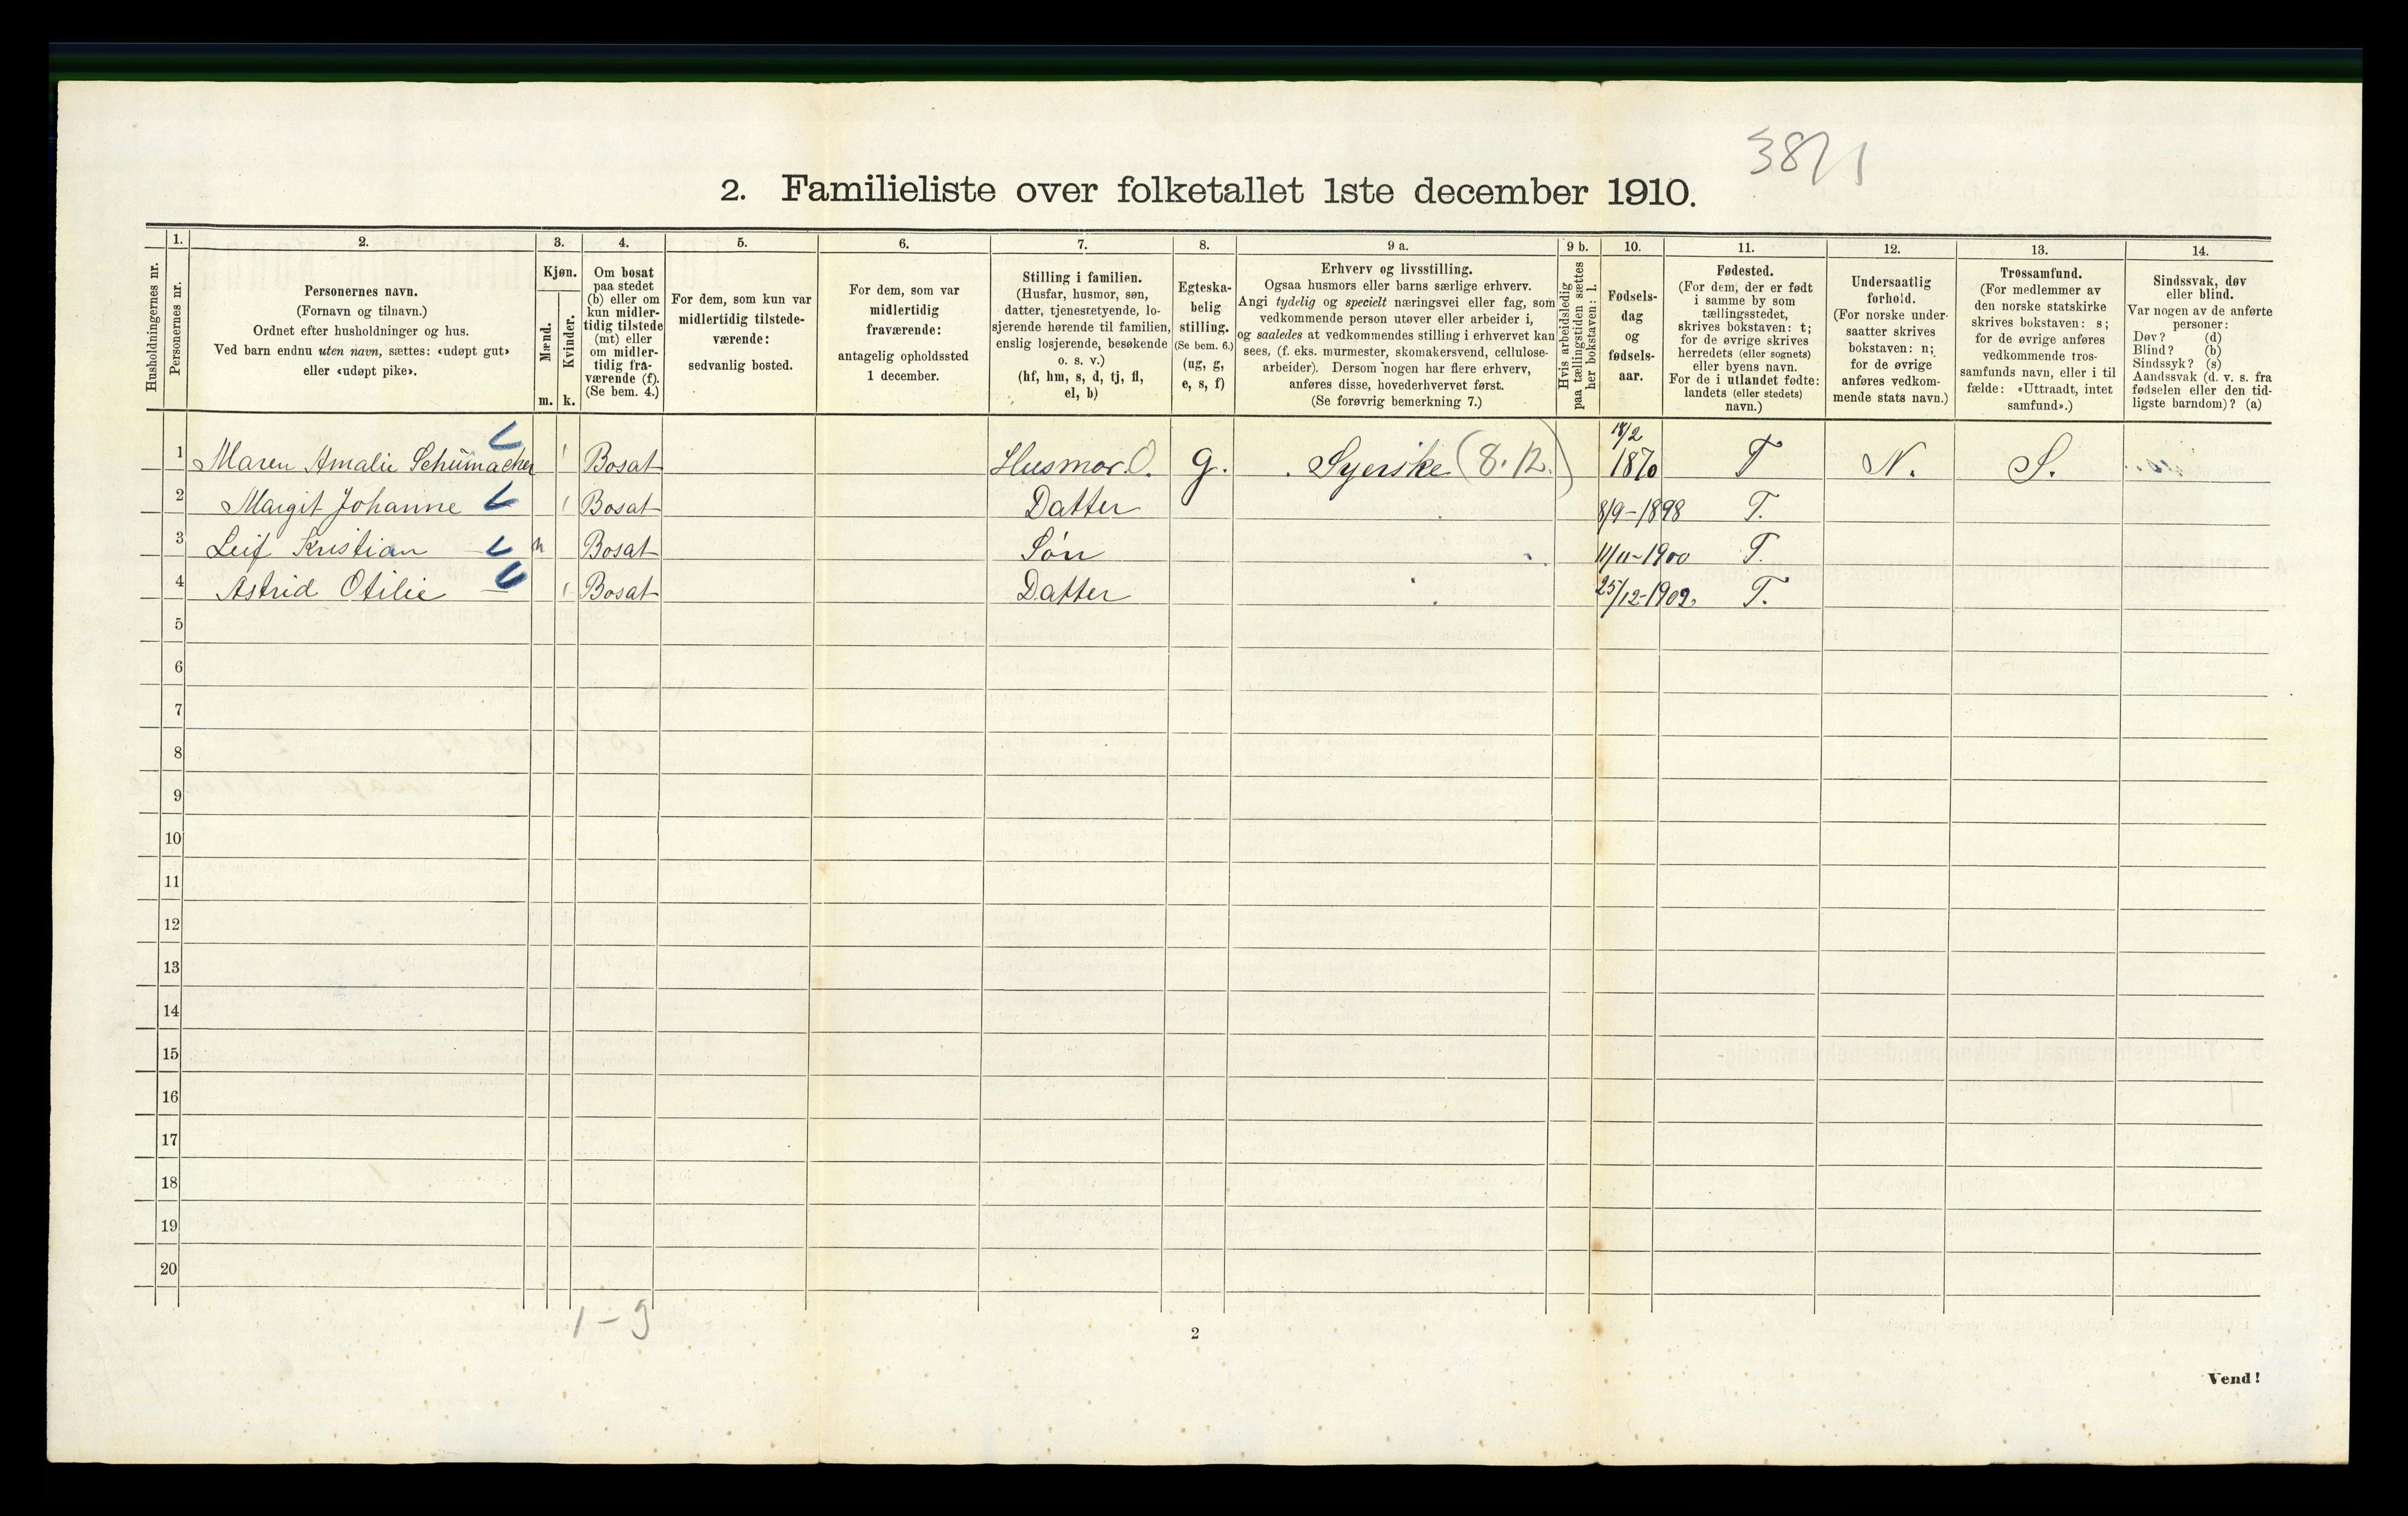 3871
2. Familieliste over folketallet 1ste december 1910.
Husholdningernes nr.
1.
Personernes nr.
2.
Personernes navn.
(Fornavn og tilnavn.)
Ordnet efter husholdninger og hus.
Ved barn endnu uten navn, sættes: «udøpt gut»
eller «udøpt pike».
3.
Kjøn.
Mænd.
Kvinder.
m. k.
4.
Om bosat
paa stedet
(b) eller om
kun midler-
tidig tilstede
(mt) eller
om midler-
tidig fra-
værende (f).
(Se bem. 4.)
5.
For dem, som kun var
midlertidig tilstede-
værende:
sedvanlig bosted.
6.
For dem, som var
midlertidig
fraværende:
antagelig opholdssted
1 december.
7.
Stilling i familien.
(Husfar, husmor, søn,
datter, tjenestetyende, lo-
sjerende hørende til familien,
enslig losjerende, besøkende
o. s. v.)
(hf, hm, s, d, tj, fl,
el, b)
8.
Egteska-
belig
stilling.
(Se bem. 6.)
(ug, g,
e, s, f)
9 a.
Erhverv og livsstilling.
Ogsaa husmors eller barns særlige erhverv.
Angi tydelig og specielt næringsvei eller fag, som
vedkommende person utøver eller arbeider i,
og saaledes at vedkommendes stilling i erhvervet kan
sees, (f. eks. murmester, skomakersvend, cellulose-
arbeider). Dersom nogen har flere erhverv,
anføres disse, hovederhvervet først.
(Se forøvrig bemerkning 7.)
9 b.
Hvis arbeidsledig
paa tællingstiden sættes
her bokstaven: l.
10.
Fødsels-
dag
og
fødsels-
aar.
11.
Fødested.
(For dem, der er født
i samme by som
tællingsstedet,
skrives bokstaven: t;
for de øvrige skrives
herredets (eller sognets)
eller byens navn.
For de i utlandet fødte:
landets (eller stedets)
navn.)
12.
Undersaatlig
forhold.
(For norske under-
saatter skrives
bokstaven: n;
for de øvrige
anføres vedkom-
mende stats navn.)
13.
Trossamfund.
(For medlemmer av
den norske statskirke
skrives bokstaven: s;
for de øvrige anføres
vedkommende tros-
samfunds navn, eller i til
fælde: «Uttraadt, intet
samfund».)
14.
Sindssvak, døv
eller blind.
Var nogen av de anførte
personer:
Døv? (d)
Blind? (b)
Sindssyk? (s)
Aandssvak (d. v. s. fra
fødselen eller den tid-
ligste barndom)? (a)
1 Maren Amalie Schümacher 1 Bosat Husmor. O. g. Syerske (8.12.) 18/2 1870 T N. S.
2 Margit Johanne 1 Bosat Datter 8/9-1898 T.
3 Leif Kristian m Bosat Søn 11/11-1900 T.
4 Astrid Otilie 1 Bosat Datter 25/12-1902 T.
5
6
7
8
9
10
11
12
13
14
15
16
17
18
19
20
1-3
2
Vend!